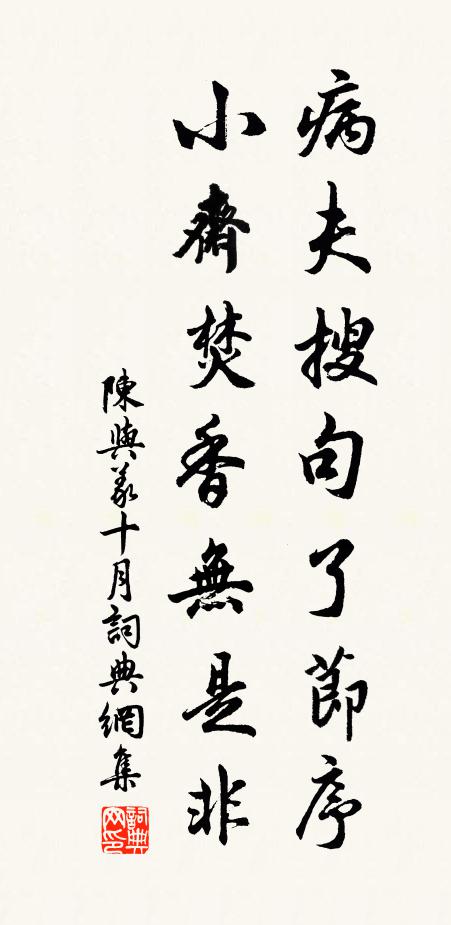 病夫搜句了節序
小齋焚香無是非
陳與義十月詞典網集
詞典網印